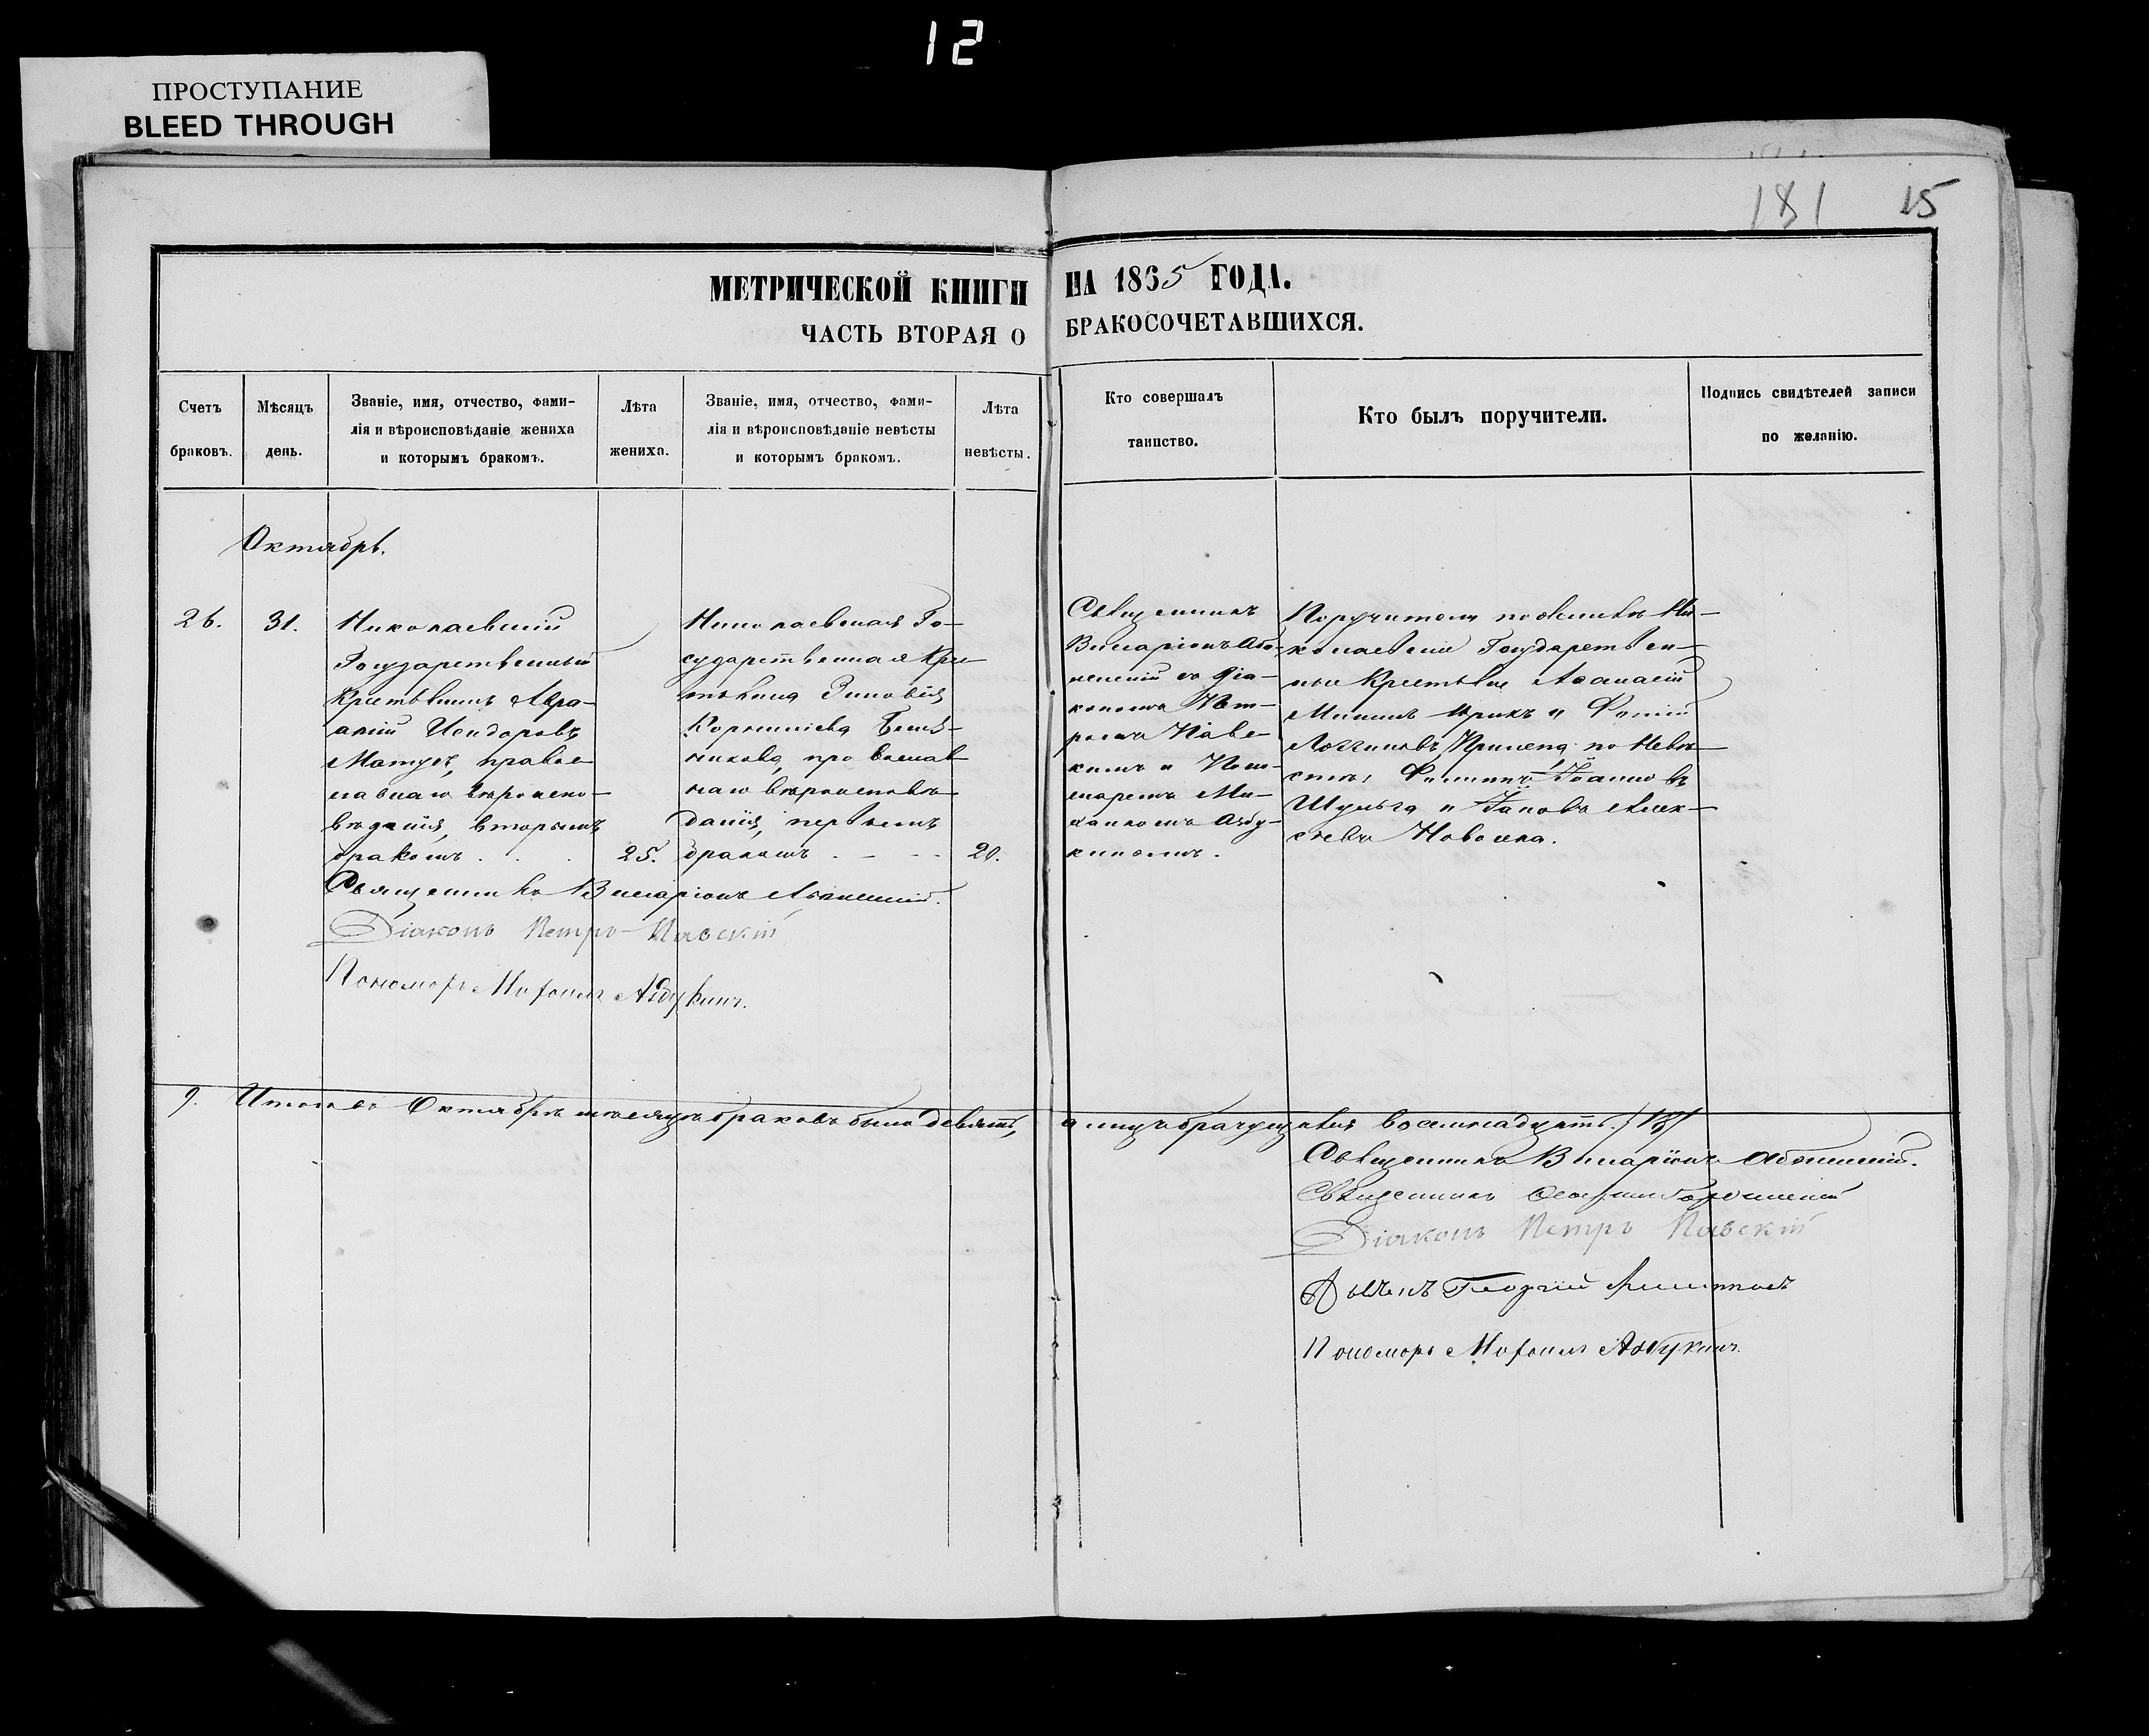 12
ПРОСТУПАНИЕ
BLEED THROUGH
181 15
МЕТРИЧЕСКОЙ КНИГИ НА 1865 ГОДА.
ЧАСТЬ ВТОРАЯ О БРАКОСОЧЕТАВШИХСЯ.
Счетъ
браковъ.
Мѣсяцъ
день.
Званіе, имя, отчество, фами-
лія и вѣроисповѣданіе жениха
и которымъ бракомъ.
Лѣта
жениха.
Званіе, имя, отчество, фами-
лія и вѣроисповѣданіе невѣсты
и которымъ бракомъ.
Лѣта
невѣсты.
Кто совершалъ
таинство.
Кто былъ поручители.
Подпись свидѣтелей записи
по желанію.
Октябрь.
26.
31.
Николаевскій
Государственный
Крестьянинъ Авра-
амій Исидоровъ
Матусъ, правос-
лавнаго вѣроиспо-
вѣданія, вторымъ
бракомъ . . .
25.
Николаевская Го-
сударственная Кре-
стьянка Зиновія
Корниліева
православ-
наго вѣроисповѣ-
данія, первымъ
бракомъ . . .
20.
Священникъ
Виларіонъ
съ Діа-
кономъ Пет-
ромъ Павс-
кимъ и Поно-
маремъ Ми-
хаиломъ Азбу-
кинымъ.
Поручители по женихѣ Ни-
колаевскіе Государствен-
ные Крестьяне Аѳанасій
Мининъ и
Логгиновъ по Невѣ-
стѣ: Филиппъ Іоанновъ
Шульга и Іаковъ Алек-
сѣевъ
Священникъ Виларіонъ
Діаконъ Петръ Павскій
Пономарь Михаилъ Азбукинъ.
9. Итого въ Октябрѣ мѣсяцѣ браковъ было девять, а лицъ брачущихся восемнадцать. /18/
Священникъ Виларіонъ
Священникъ
Діаконъ Петръ Павскій
Дьячекъ Георгій
Пономарь Михаилъ Азбукинъ.